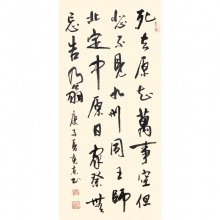 死去原知萬事空但
悲不見九州同王師
北定中原日家祭無
忘告乃翁 庚子夏